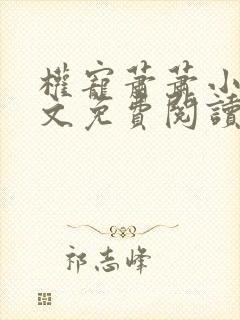 權寵蕭蕭小
文免費閱讀
祁志峰